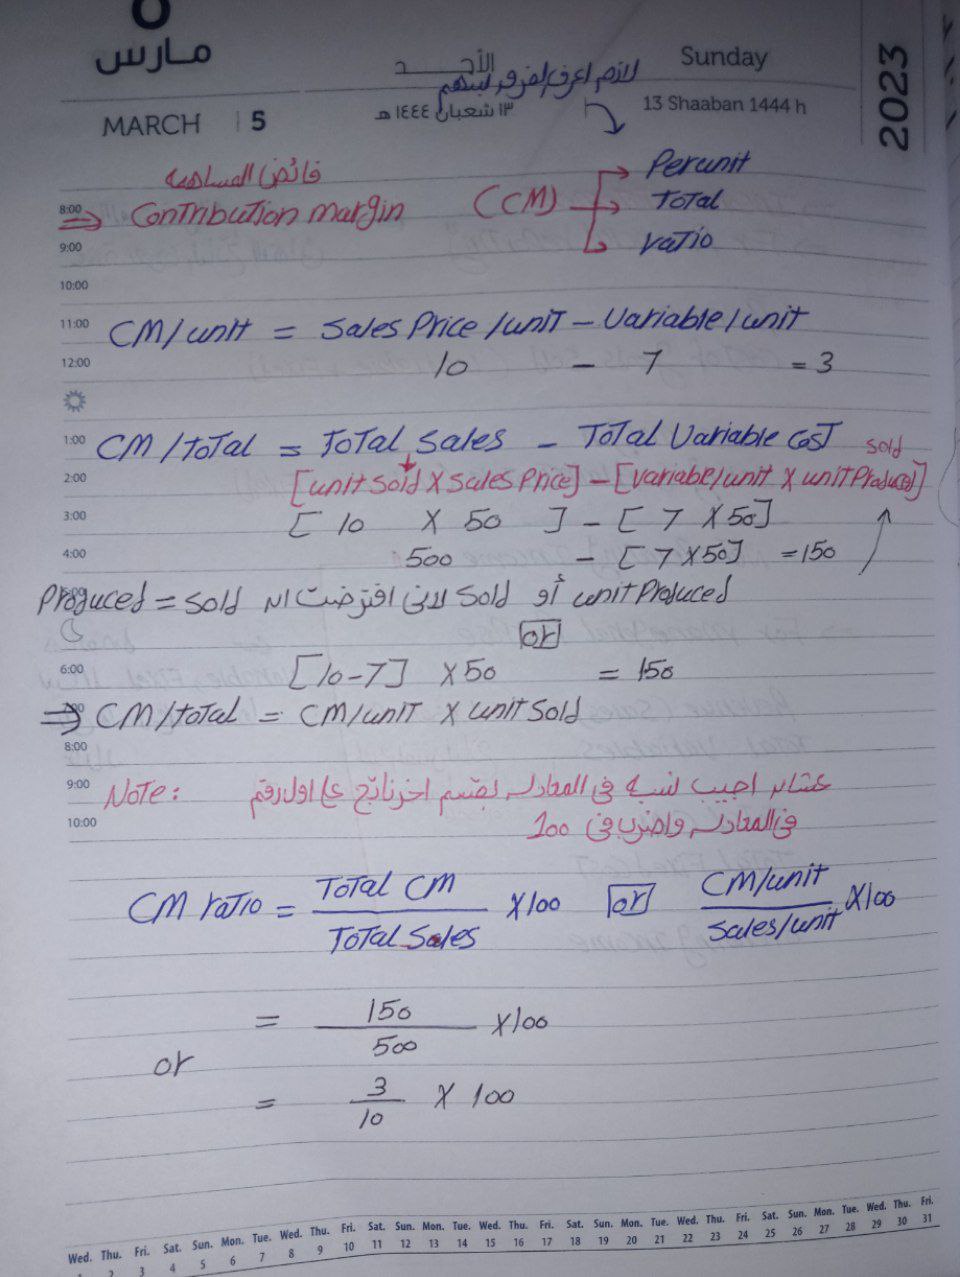 5
مارس
MARCH 5
الأحد
١٣ شعبان ١٤٤٤ هـ
Sunday
13 Shaaban 1444 h
2023
لازم اعرف الفرق بينهم
فائض المساهمة
8:00 ⇒ Contribution margin (CM) → Per unit
→ Total
9:00 → ratio
10:00
11:00 CM/unit = Sales Price/unit - Variable/unit
12:00 10 - 7 = 3
1:00 CM/Total = Total Sales - Total Variable Cost
sold
2:00 [unit Sold X Sales Price] - [Variable/unit X unit Produced]
3:00 [ 10 X 50 ] - [ 7 X 50]
4:00 500 - [7 X 50] = 150
unit Produced أو Sold لانى افترضت ان Produced = Sold
or
6:00 [10-7] X 50 = 150
⇒ CM/total = CM/unit X unit Sold
8:00
9:00 Note: عشان اجيب نسبة فى المعادلة بقسم اخر ناتج على اول رقم
10:00 فى المعادلة واضرب فى 100
CM ratio = Total CM / Total Sales X100 or CM/unit / Sales/unit X100
= 150 / 500 X100
or
= 3 / 10 X 100
Wed. Thu. Fri. Sat. Sun. Mon. Tue. Wed. Thu. Fri. Sat. Sun. Mon. Tue. Wed. Thu. Fri. Sat. Sun. Mon. Tue. Wed. Thu. Fri. Sat. Sun. Mon. Tue. Wed. Thu. Fri.
1 2 3 4 5 6 7 8 9 10 11 12 13 14 15 16 17 18 19 20 21 22 23 24 25 26 27 28 29 30 31